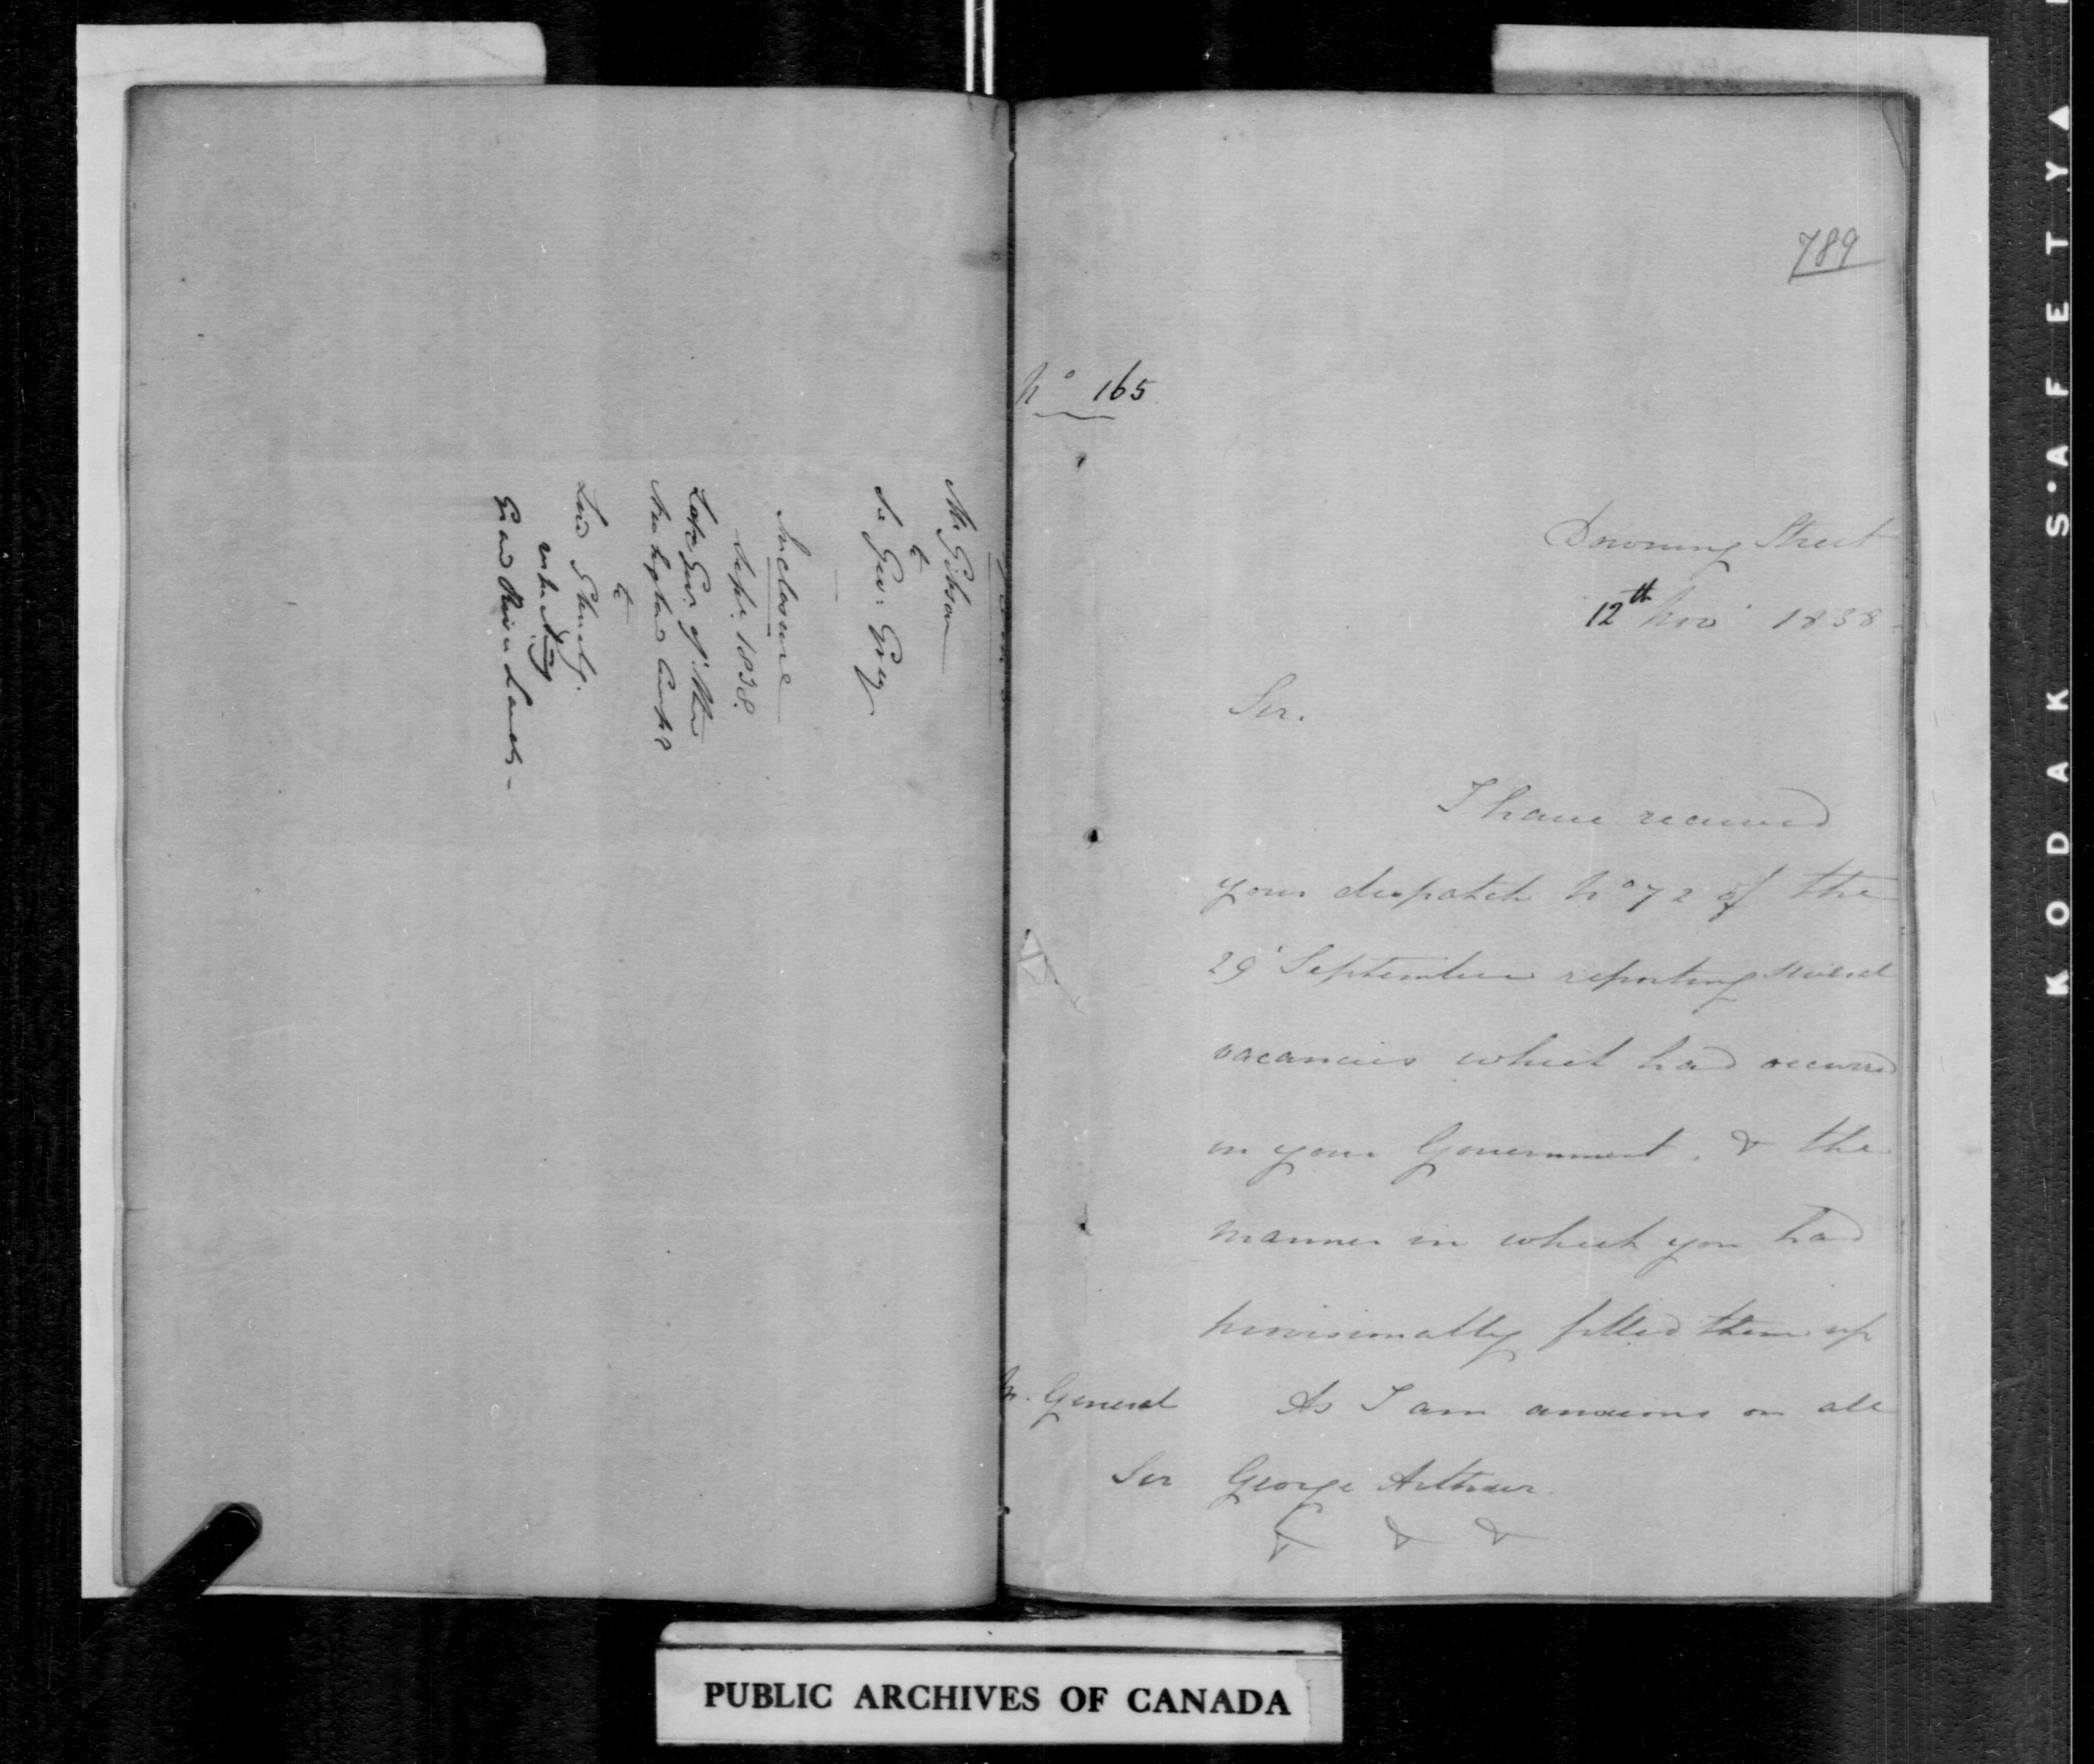 Mr Gibson
to
Sir Geo: Grey
Inclosure
Sept. 1838.
Late Gov. of the
New England Comp.
to
Lord Glenelg.
Grand River Lands -
789
No 165
Downing Street
12th Nov 1838
Sir.
I have received
your despatch No 72 of the
29 September reporting several
vacancies which had occurred
in your Government, & the
manner in which you had
provisionally filled them up
As I am anxious on all
M. General
Sir George Arthur.
& & &
PUBLIC ARCHIVES OF CANADA
KODAK S·AFETY▲